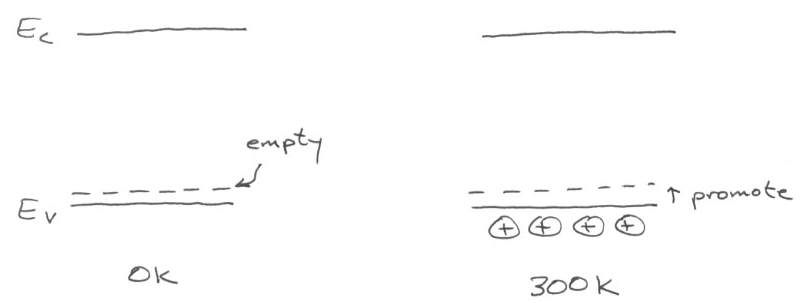 Ec
empty
Ev
↑ promote
⊕ ⊕ ⊕ ⊕
0K
300K